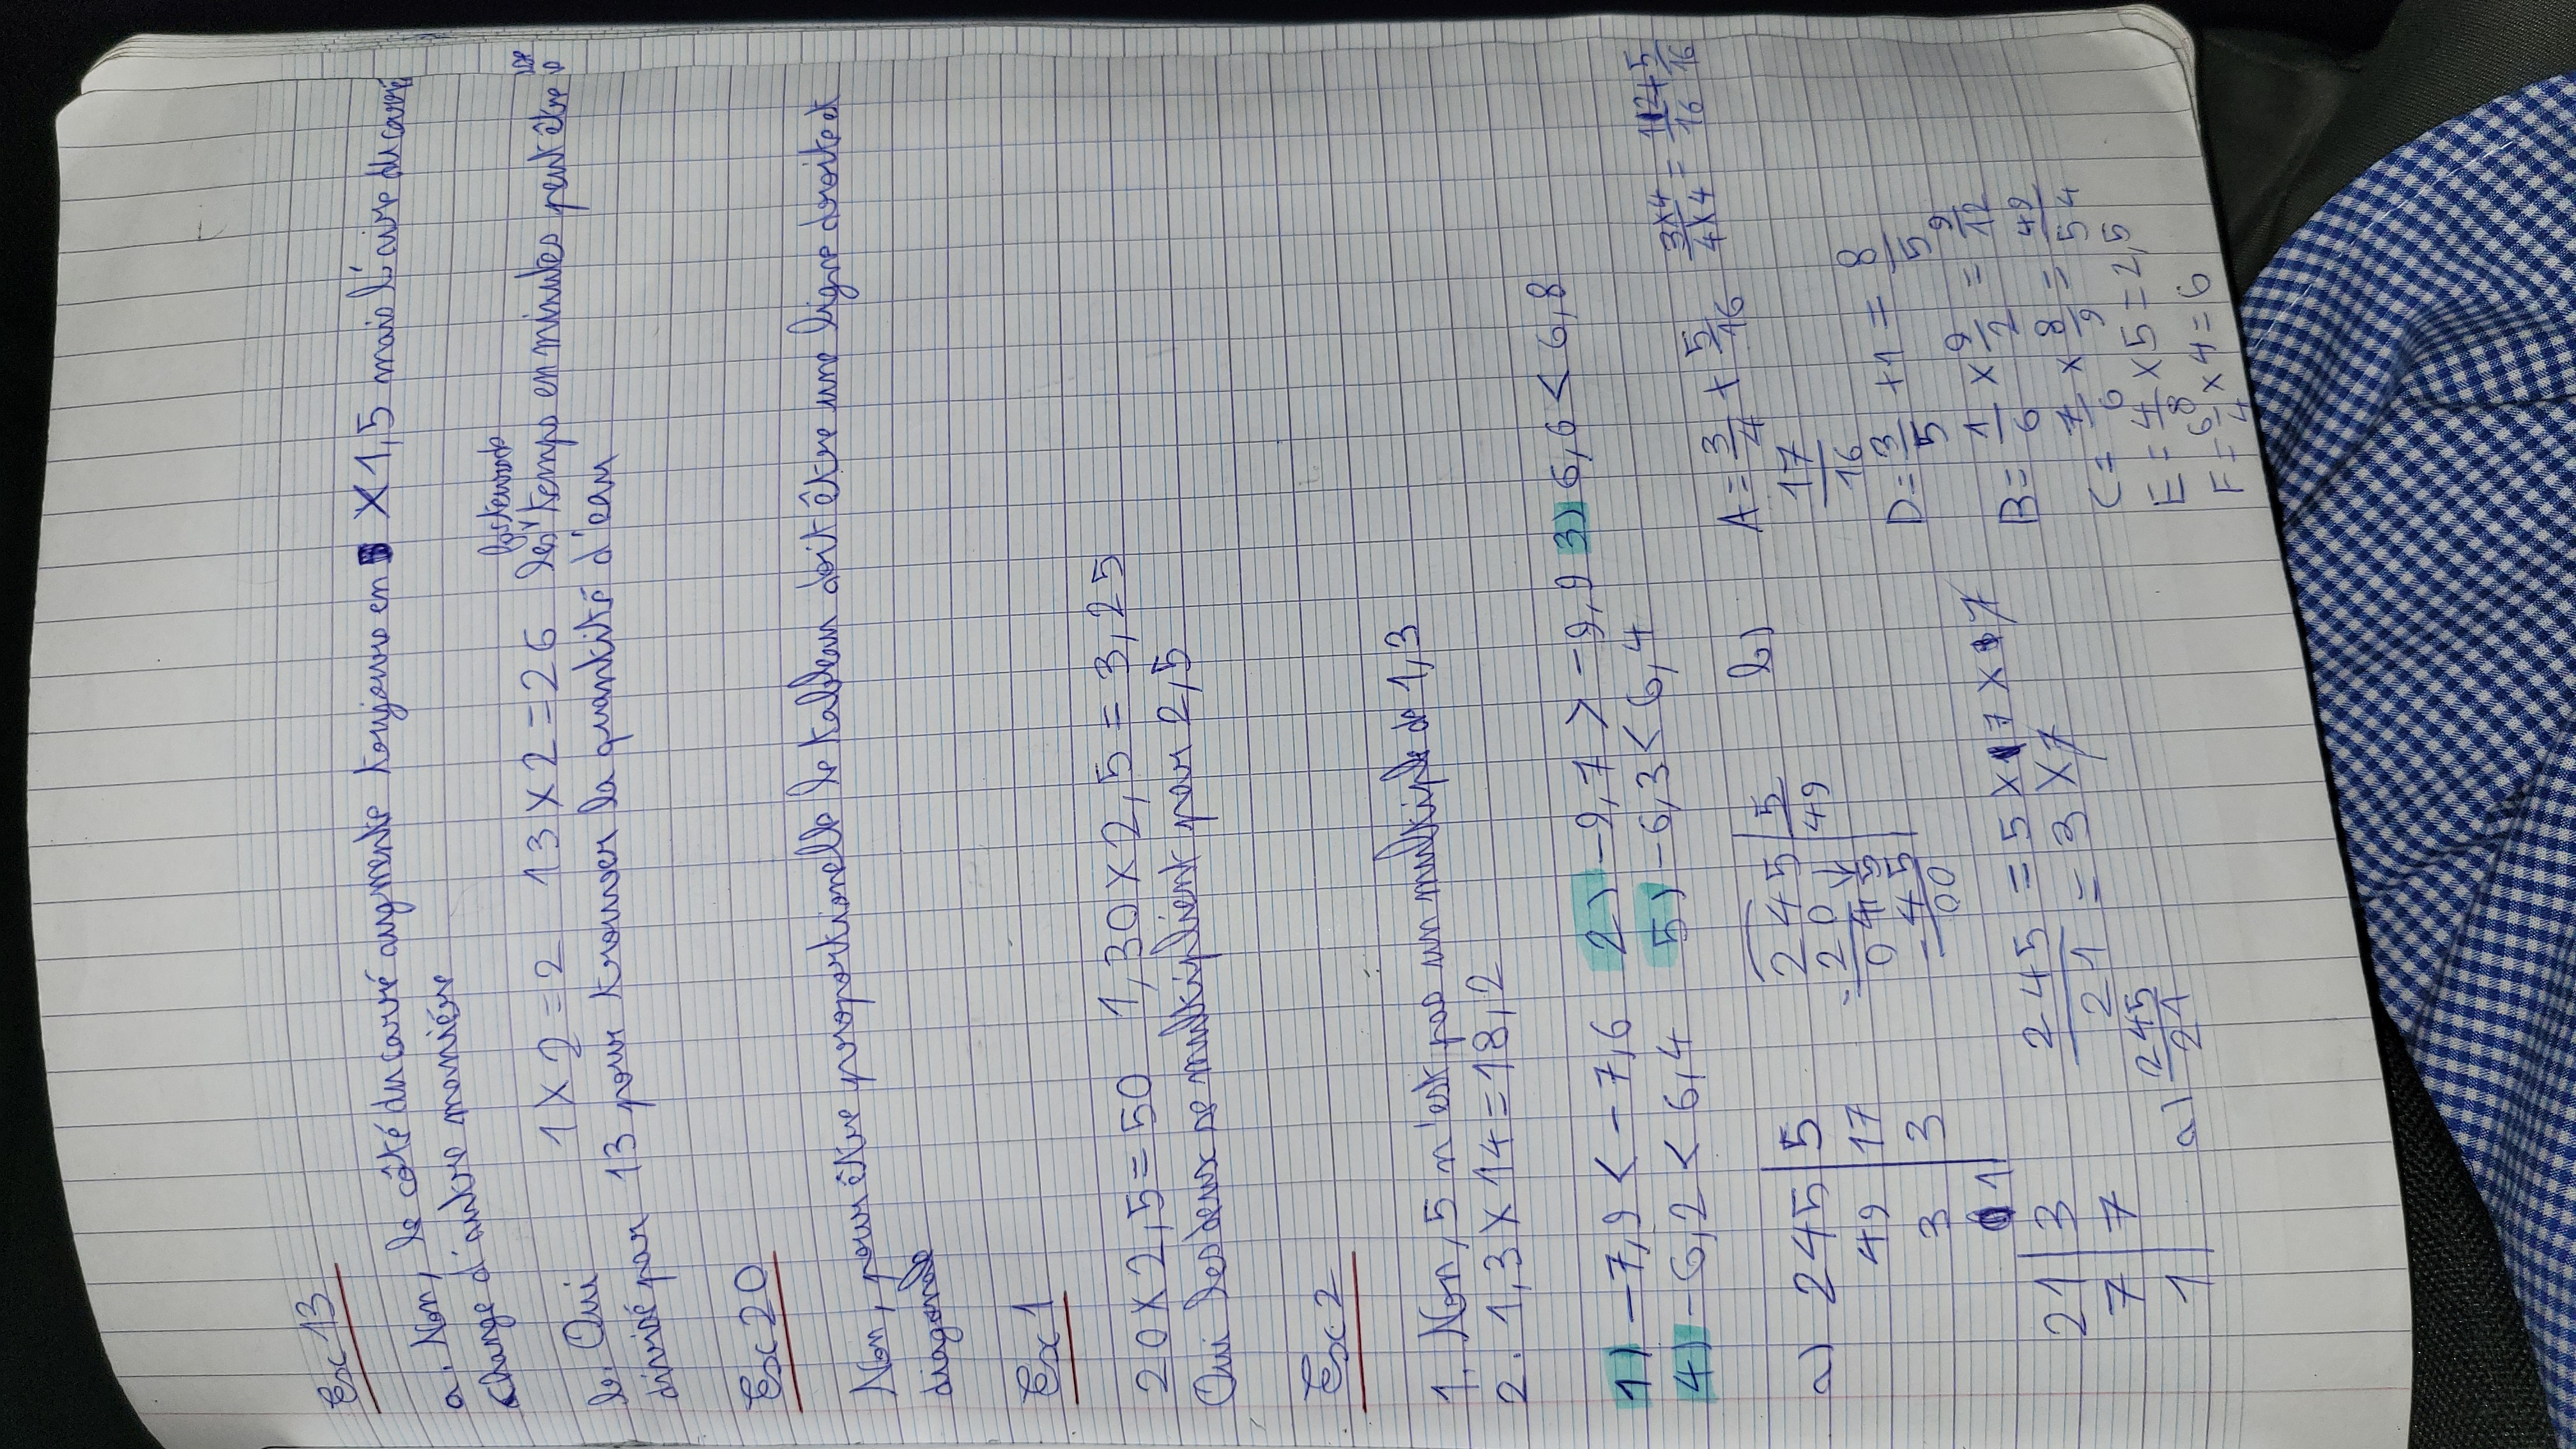 Exc 13
a. Non, le côté du carré augmente toujours en X 1,5 mais l'aire du carré
change d'autre manière
1 X 2 = 2 13 X 2 = 26 les temps en minutes peut être
b. Oui
divisé par 13 pour trouver la quantité d'eau
Exc 20
Non, pour être proportionelle le tableau doit être une ligne droite et
diagonale
Exc 1
20 X 2,5 = 50 1,30 X 2,5 = 3,25
Oui les deux se multiplient par 2,5
Exc 2
1. Non, 5 n'est pas un multiple de 1,3
2. 1,3 X 14 = 18,2
1) -7,9 < -7,6 2) -9,7 > -9,9 3) 6,6 < 6,8
4) -6,2 < 6,4 5) -6,3 < 6,4
a) 245 | 5
49 | 17
3 | 3
1
21 | 3
7 | 7
1
245 | 5
- 20 | 49
045
- 45
00
245/21 = 5 X 7 X 7 / 3 X 7
a) 245/21
b) A = 3/4 + 5/16 3 X 4 / 4 X 4 = 12/16 + 5/16
17/16
D = 3/5 + 1 = 8/5
B = 1/6 X 9/2 = 9/12
C = 7/6 X 8/9 = 49/54
E = 4/8 X 5 = 2,5
F = 6/4 X 4 = 6